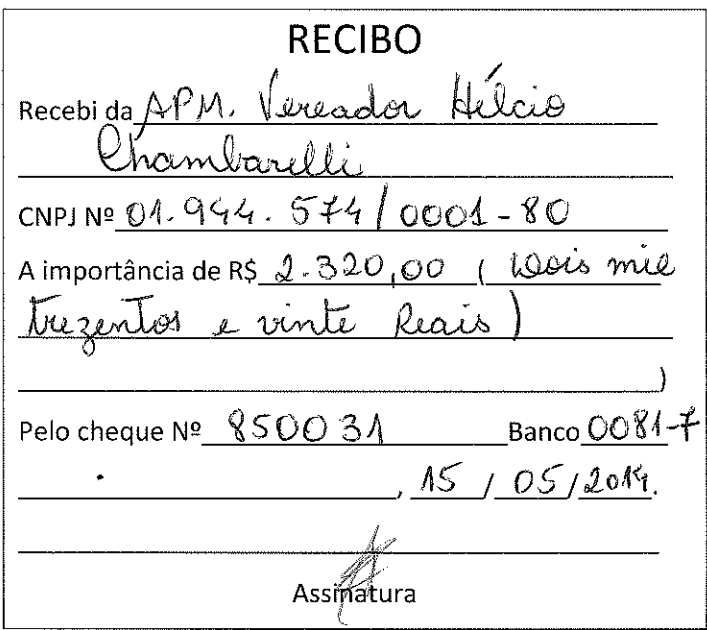 RECIBO
Recebi da APM. Vereador Hélcio
Chambarelli
CNPJ Nº 01.944.574/0001-80
A importância de R$ 2.320,00 ( Dois mil
trezentos e vinte Reais)
)
Pelo cheque Nº 850031 Banco 0081-7
, 15 / 05 / 2014.
Assinatura